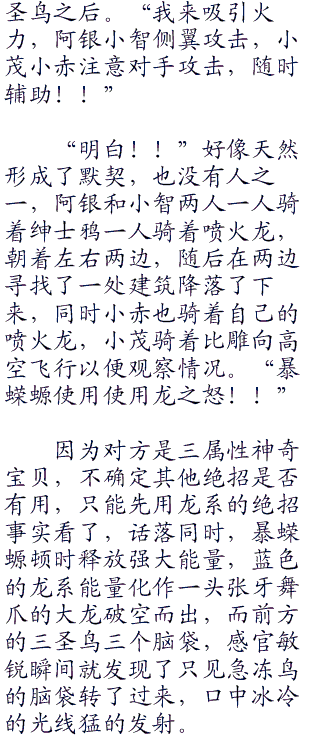 圣鸟之后。“我来吸引火
力，阿银小智侧翼攻击，小
茂小赤注意对手攻击，随时
辅助！！”
“明白！！”好像天然
形成了默契，也没有人之
一，阿银和小智两人一人骑
着绅士鸦一人骑着喷火龙，
朝着左右两边，随后在两边
寻找了一处建筑降落了下
来，同时小赤也骑着自己的
喷火龙，小茂骑着比雕向高
空飞行以便观察情况。“暴
蝾螈使用使用龙之怒！！”
因为对方是三属性神奇
宝贝，不确定其他绝招是否
有用，只能先用龙系的绝招
事实看了，话落同时，暴蝾
螈顿时释放强大能量，蓝色
的龙系能量化作一头张牙舞
爪的大龙破空而出，而前方
的三圣鸟三个脑袋，感官敏
锐瞬间就发现了只见急冻鸟
的脑袋转了过来，口中冰冷
的光线猛的发射。